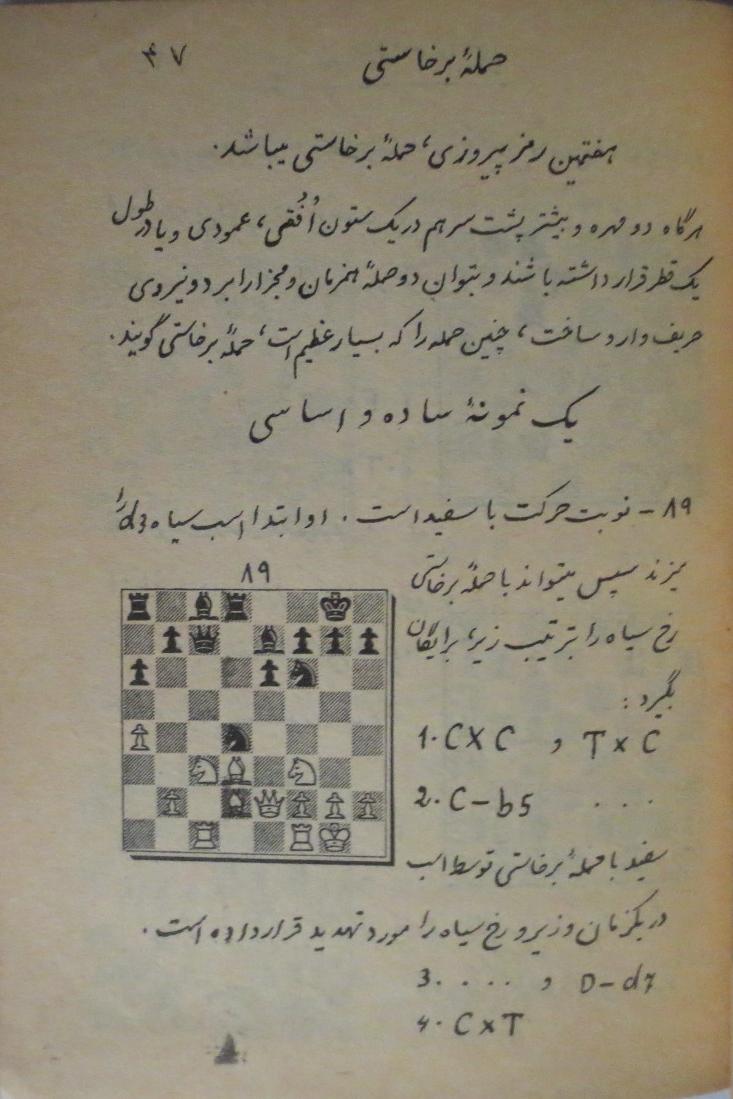 حملهٔ برخاستی ۴۷
هفتمین رمز پیروزی، حملهٔ برخاستی میباشد.
هرگاه دو مهره و بیشتر پشت سر هم در یک ستون اُفُقی، عمودی و یا در طول
یک قطر قرار داشته باشند و بتوان دو حملهٔ همزمان و مجزا را بر دو نیروی
حریف وارد ساخت، چنین حمله را که بسیار عظیم است، حملهٔ برخاستی گویند.
یک نمونهٔ ساده و اساسی
۸۹ - نوبت حرکت با سفید است. او ابتدا اسب سیاه d3 را
میزند سپس میتواند با حملهٔ برخاستی
رخ سیاه را بترتیب زیر، برایگان
بگیرد:
۸۹
1. C X C و T x C
2. C - b5 . . .
سفید با حملهٔ برخاستی توسط اسب
در یکزمان وزیر و رخ سیاه را مورد تهدید قرار داده است.
3. . . . . و D - d7
4. C x T